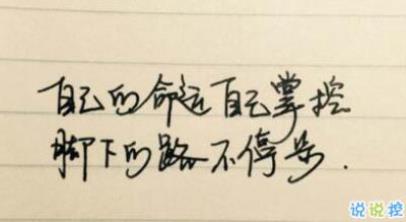 自己的命运自己掌控
脚下的路不停步.
说说控